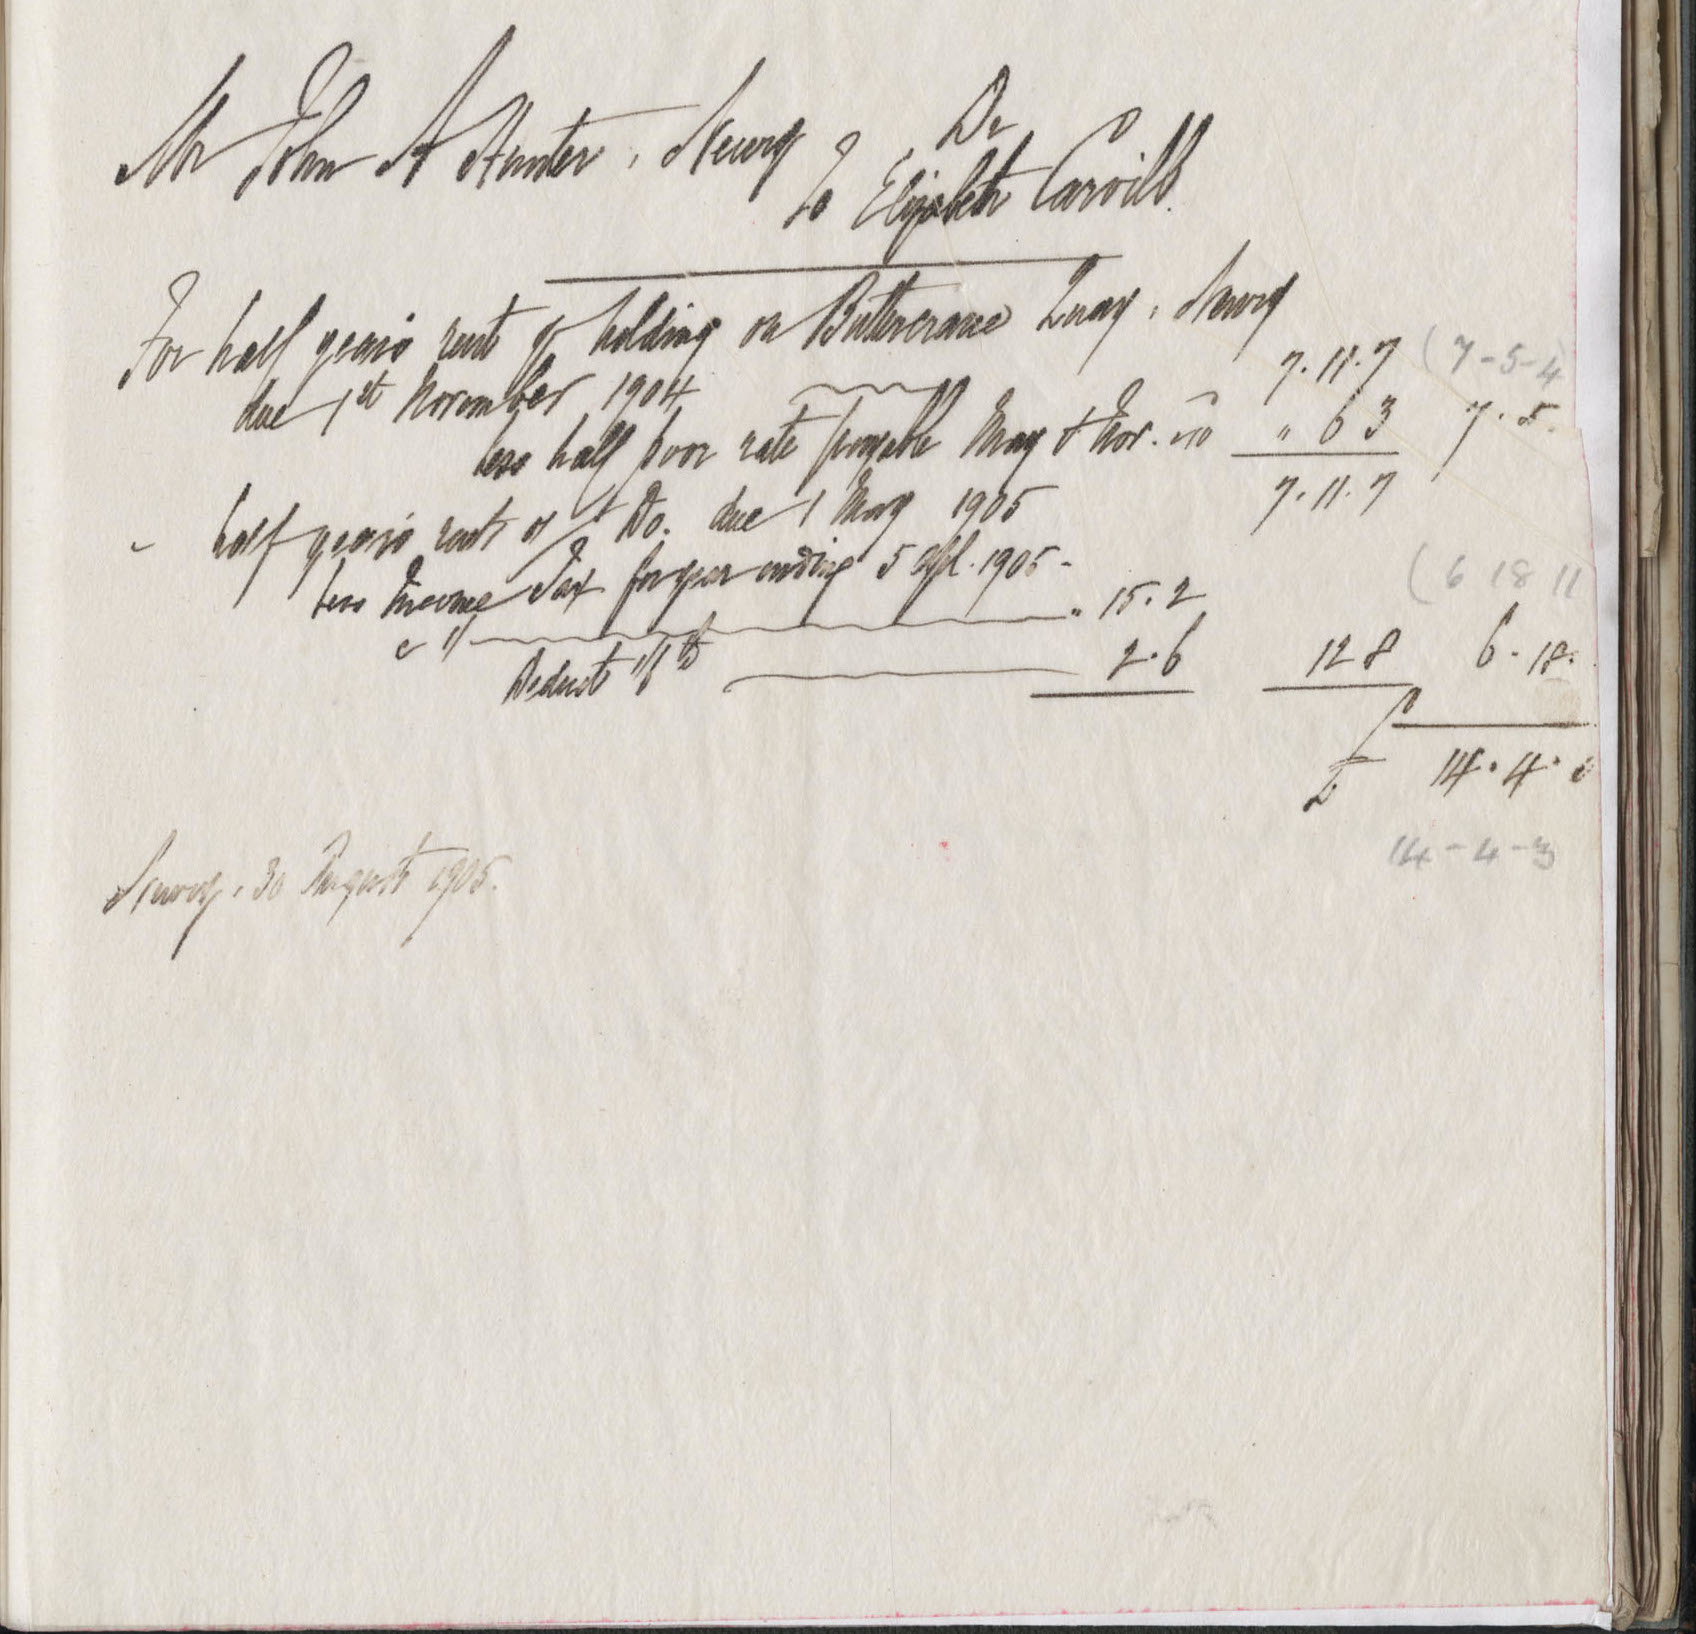 Mr John A Hunter, Newry
Dr
To Elizabeth Carvill.
For half years rent of holding on Buttercrane Quay, Newry
due 1st November 1904 7.11.7 (7-5-4
less half poor rate payable May & Nov. " 6 3 7.5.
" half years rent of Do. due 1 May 1905 7.11.7
less Income Tax for year ending 5 Apl. 1905- (6 18 11
" 15.2
Deduct 1/6th 2.6 12 8 6.18.
£ 14.4.
14-4-3
Newry, 30 August 1905.